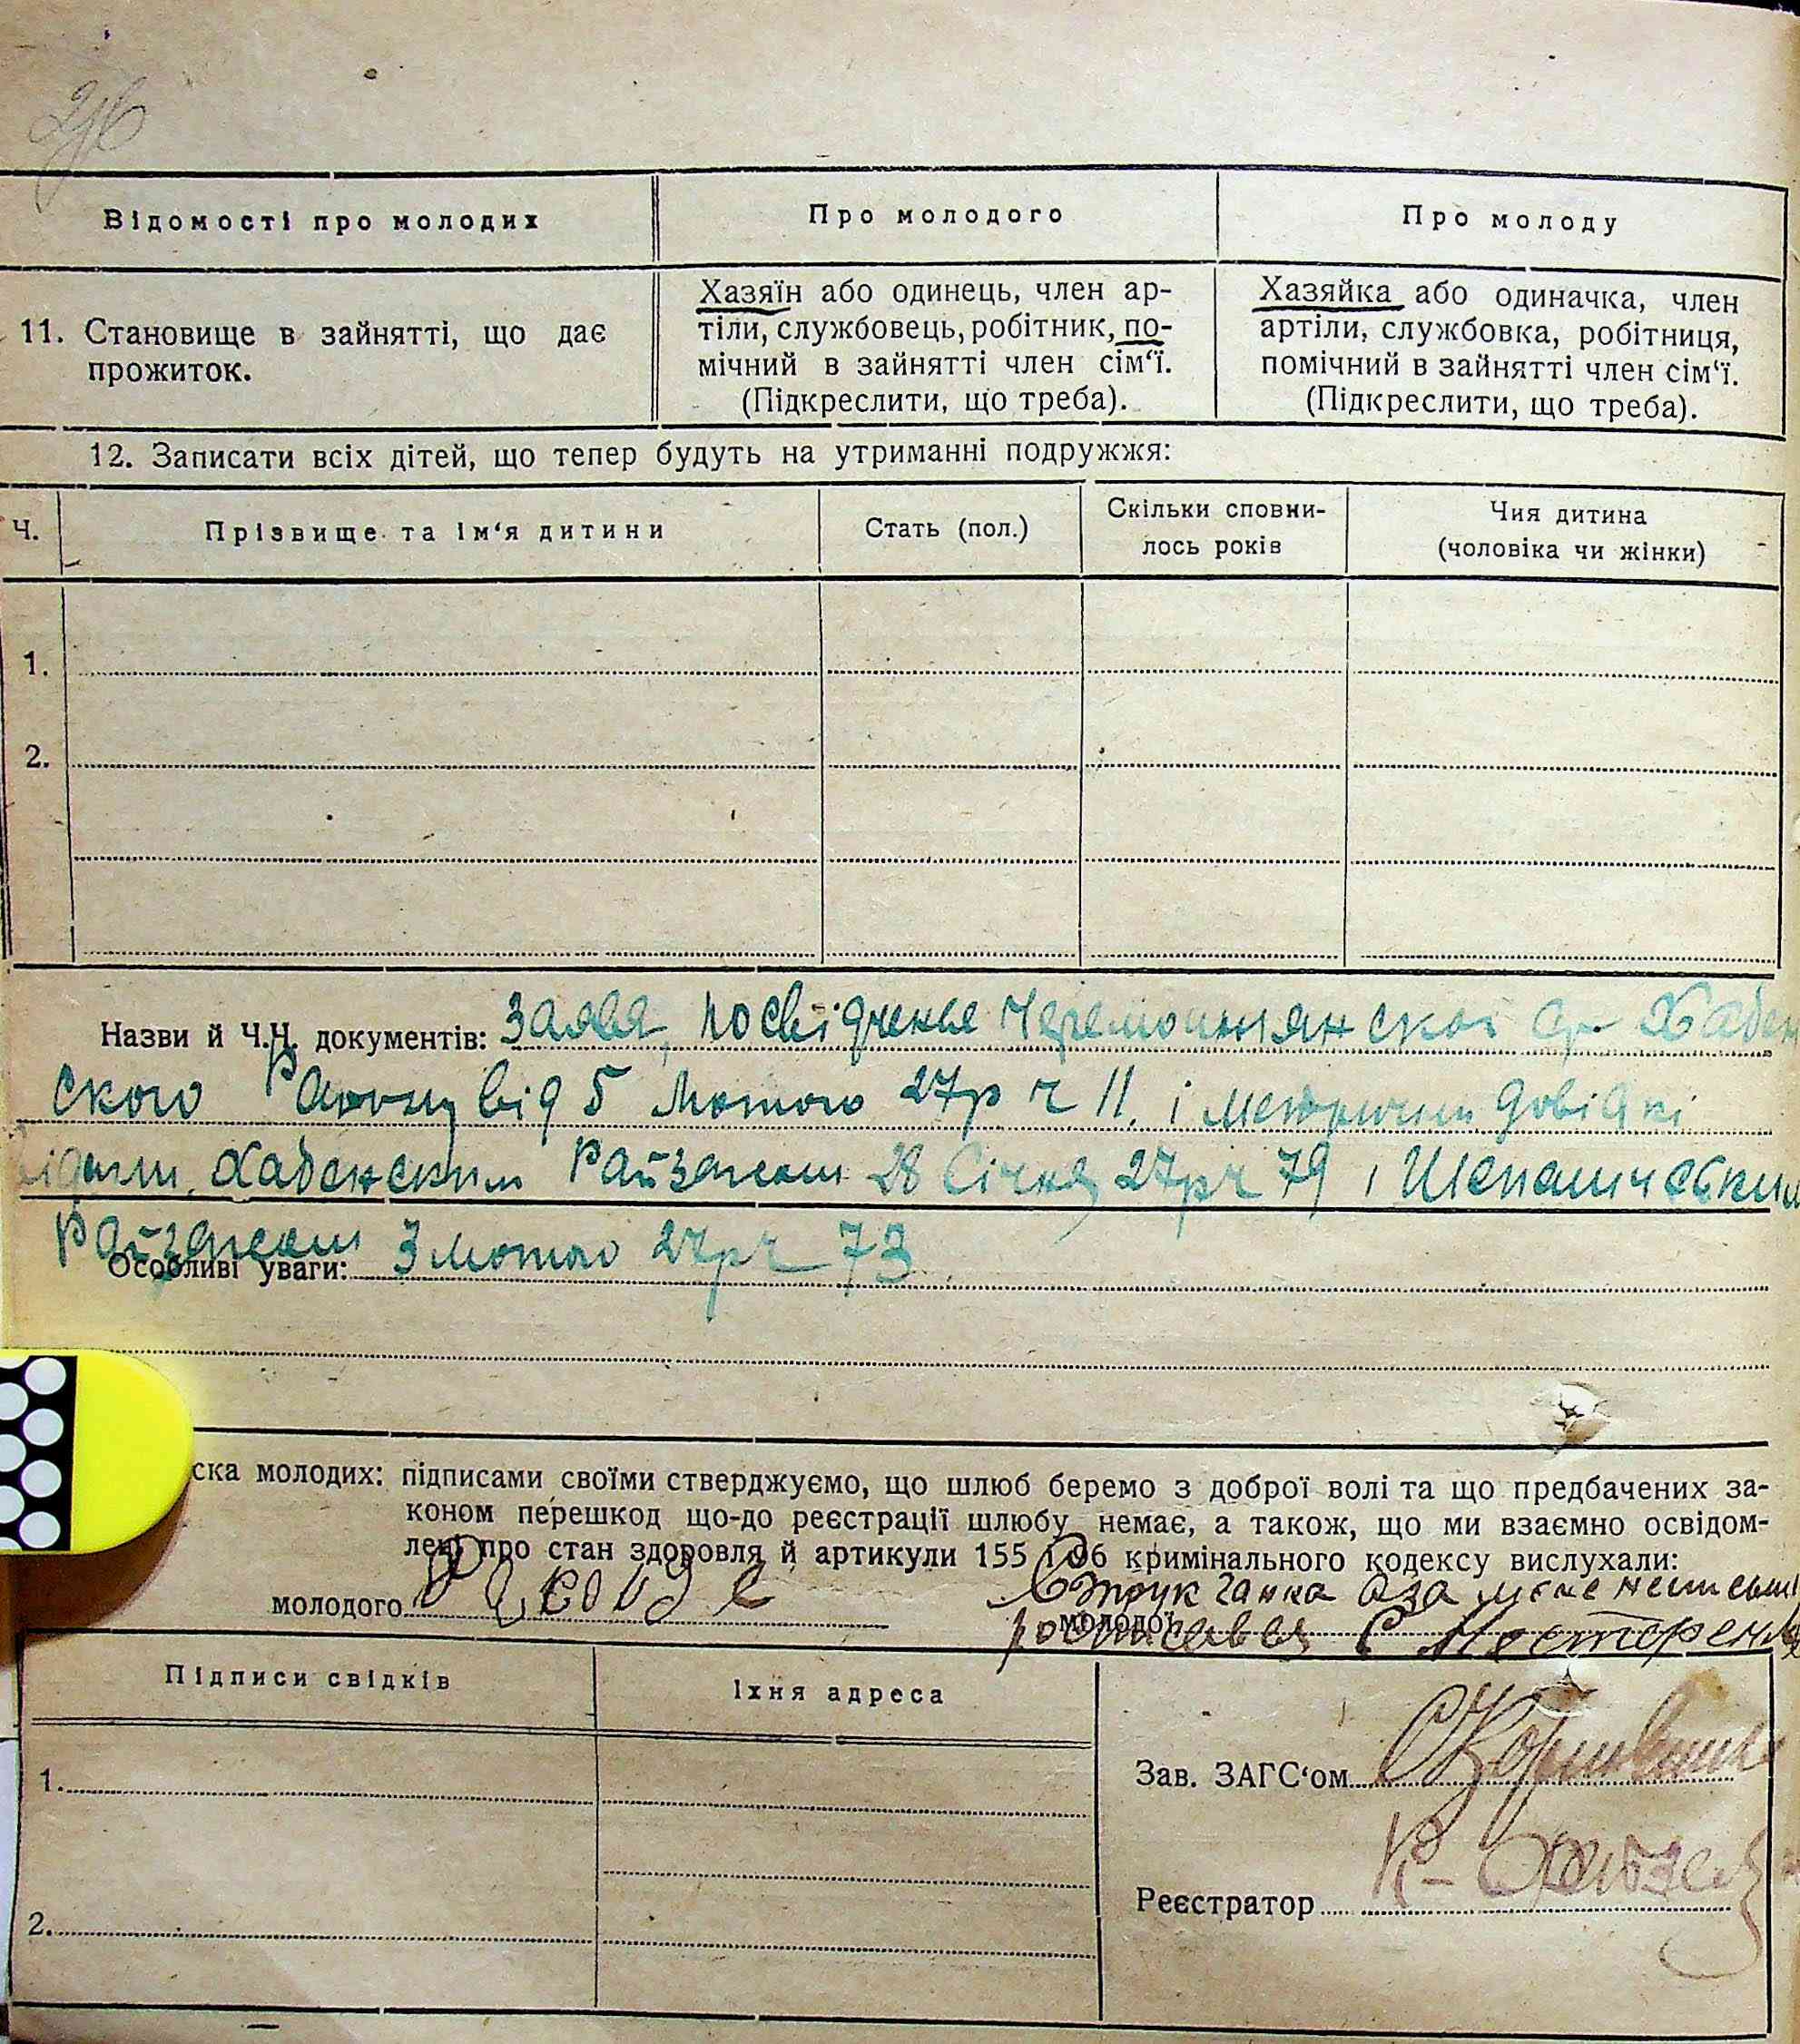 Відомості про молодих
Про молодого
Про молоду
11. Становище в зайнятті, що дає
прожиток.
Хазяїн або одинець, член ар-
тіли, службовець, робітник, по-
мічний в зайнятті член сім‘ї.
(Підкреслити, що треба).
Хазяйка або одиначка, член
артіли, службовка, робітниця,
помічний в зайнятті член сім‘ї.
(Підкреслити, що треба).
12. Записати всіх дітей, що тепер будуть на утриманні подружжя:
Ч.
Прізвище та ім‘я дитини
Стать (пол.)
Скільки сповни-
лось років
Чия дитина
(чоловіка чи жінки)
1.
2.
Назви й Ч.Ч. документів: Заява, посвідченье
ского Району від 5 Лютого 27р ч 11. і довідкі
Хабенским Райзагсом 28 Січня 27рч 79 і
Райзагсом 3 Лютого 27рч 73
Особливі уваги:
ска молодих: підписами своїми стверджуємо, що шлюб беремо з доброї волі та що предбачених за-
коном перешкод що-до реєстрації шлюбу немає, а також, що ми взаємно освідом-
лені про стан здоровля й артикули 155 і 96 кримінального кодексу вислухали:
молодого
молодої
Підписи свідків
Їхня адреса
1.
2.
Зав. ЗАГС‘ом
Реєстратор